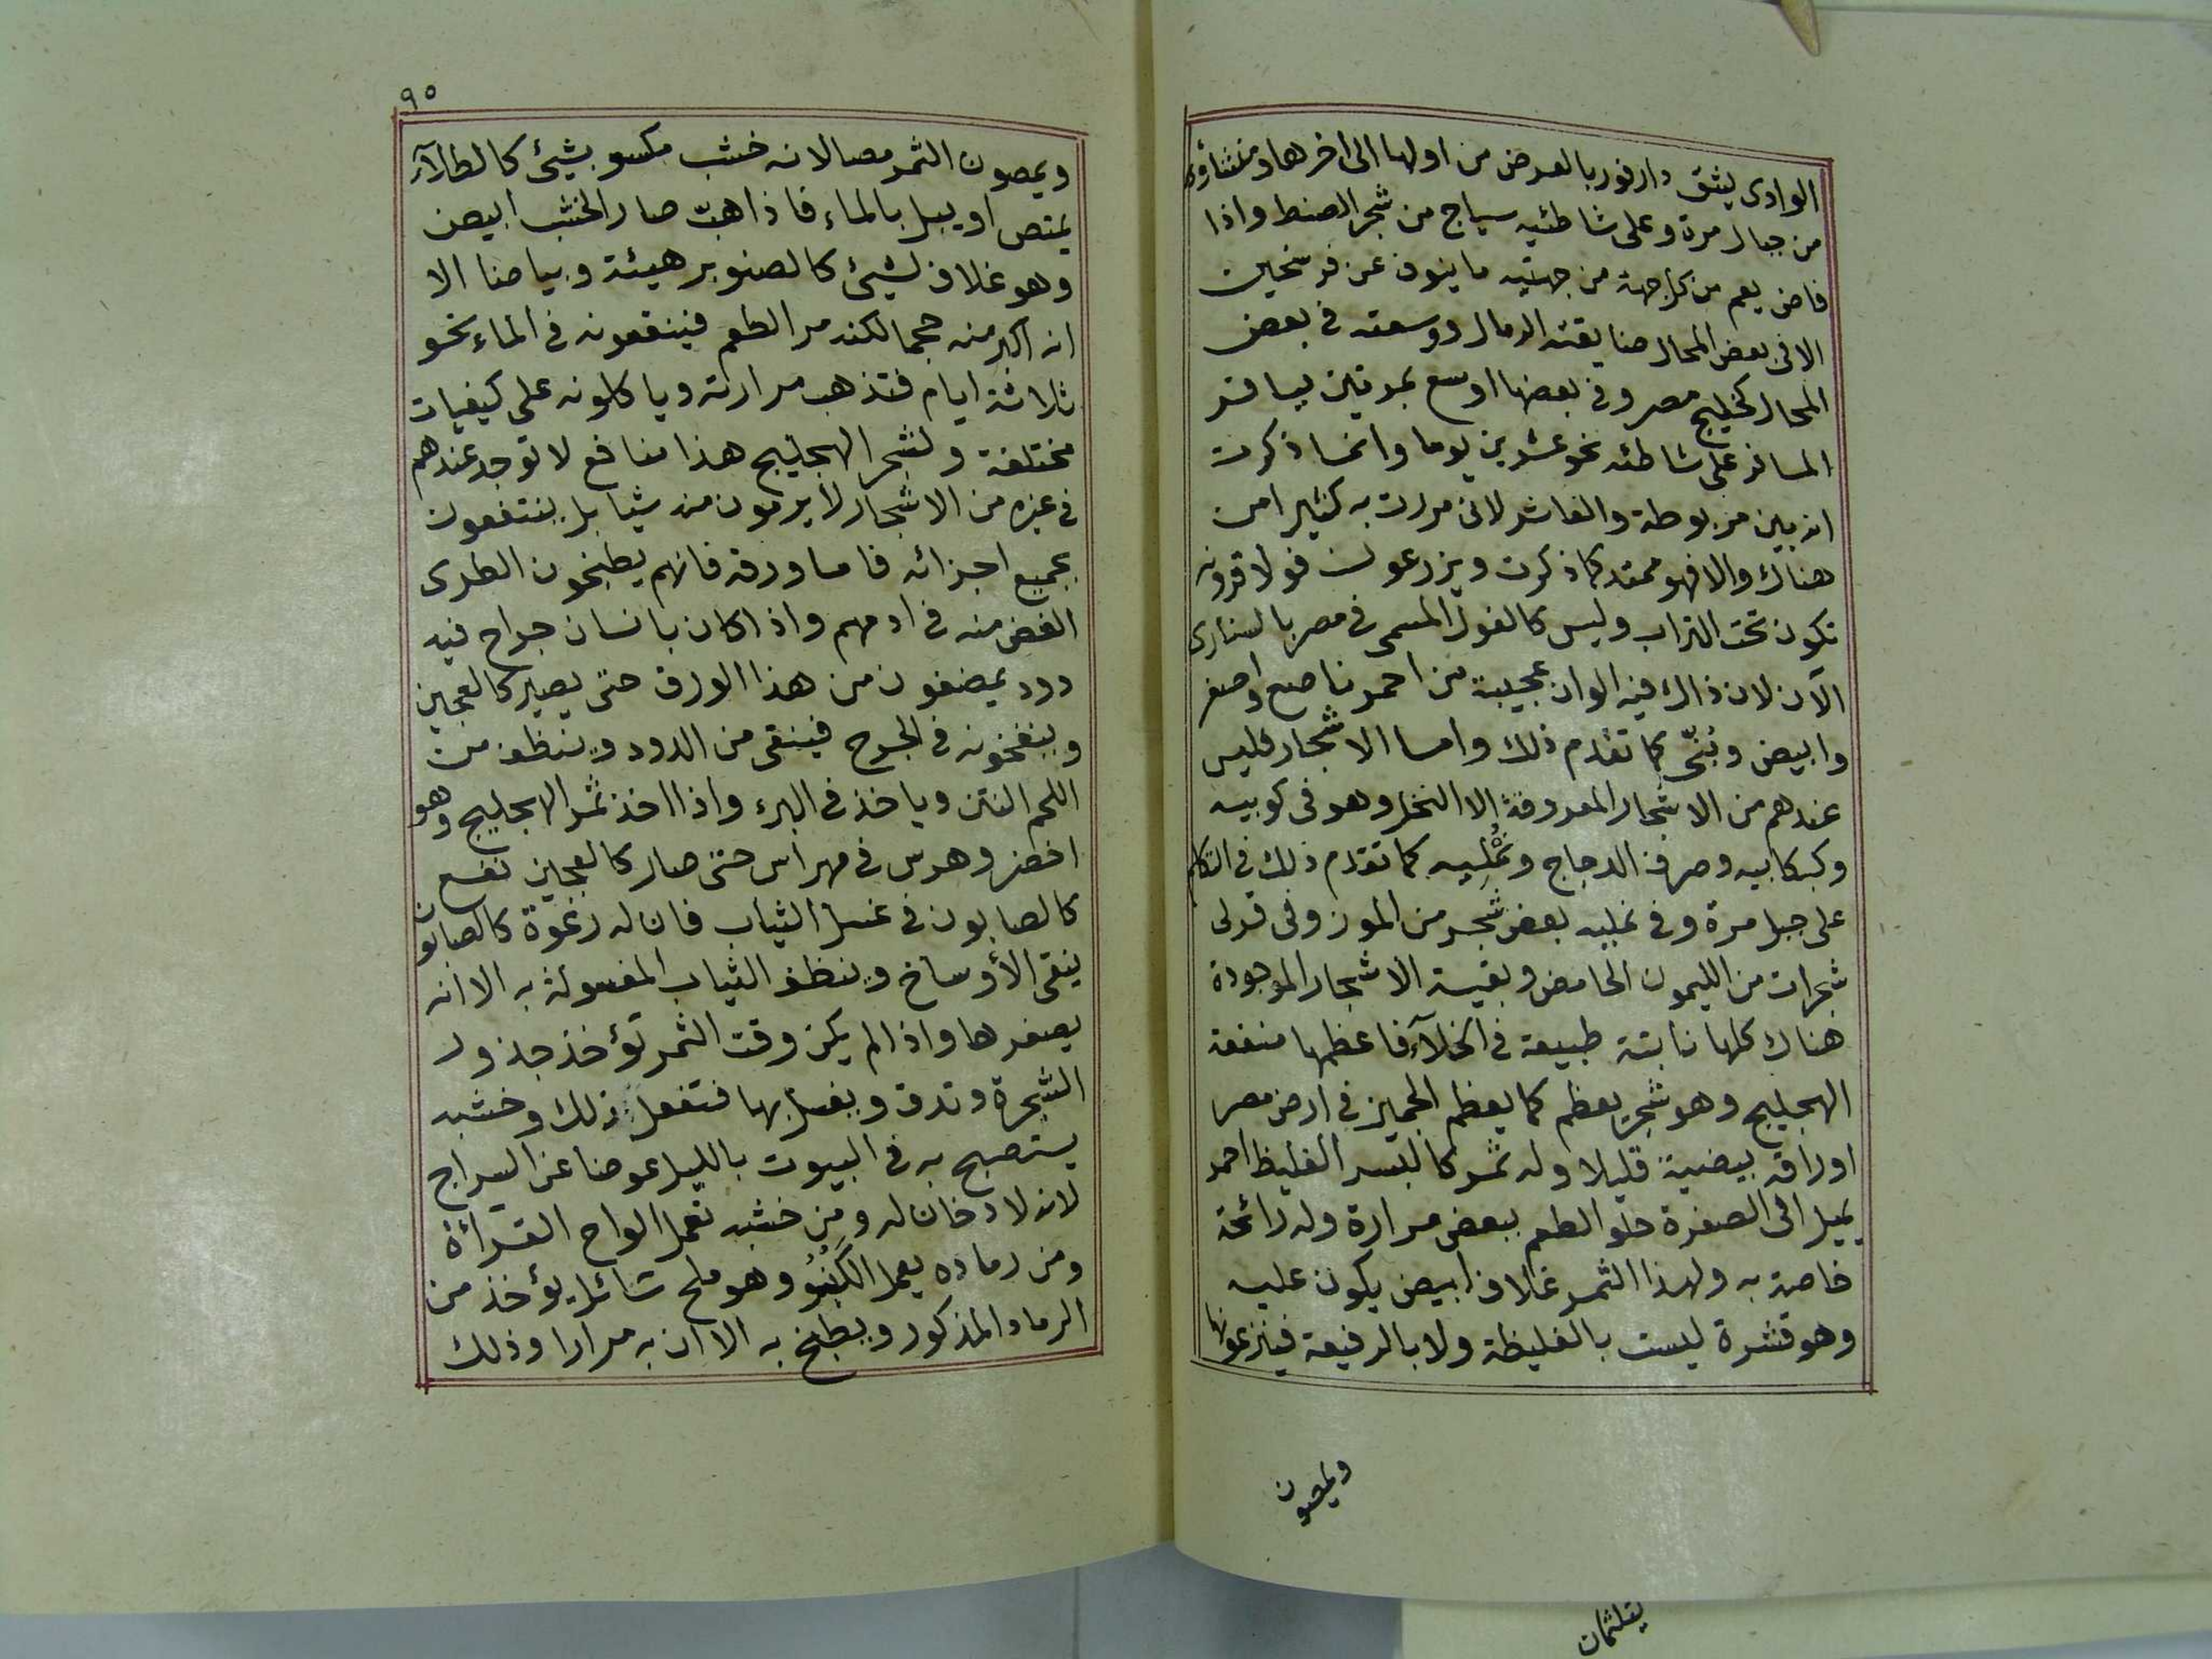 الوادى يشق دارفور بالعرض من اولها الى اخرها ومنشاؤه
من جبال مرة وعلى شاطئيه سياج من شجر الصنط واذا
فاض يعم من كل جهة من جهتيه ما ينوف عن فرسخين
الا فى بعض المحال ضايقته الرمال ووسعته فى بعض
المحال كخليج مصر وفى بعضها اوسع بمرتين يسافر
المسافر على شاطئه نحو عشرين يوما وانما ذكرت
انه بين مربوطة والفاشر لانى مررت به كثيرا من
هناك والا فهو ممتد كما ذكرت ويزرعون فولا قرونه
تكون تحت التراب وليس كالفول المسمى فى مصر بالسنارى
الآن لان ذالك فيه الوان عجيبة من احمر ناصع واصفر
وابيض وبُنّى كما تقدم ذلك واما الاشجار فليس
عندهم من الاشجار المعروفة إلا النخل وهو فى كوبيه
وكبكابيه وصرف الدجاج ونُمْلَيه كما تقدم ذلك فى التكلم
على جبل مرة وفى نمليه بعض شجر من الموز وفى قرلى
شجرات من الليمون الحامض وبقية الاشجار الموجودة
هناك كلها نابتة طبيعة فى الخلآء فاعظمها منفعة
الهجليج وهو شجر يعظم كما يعظم الجميز فى ارض مصر
اوراقه بيضية قليلا وله ثمر كالبسر الغليظ احمر
يميل الى الصفرة حلو الطعم ببعض مرارة وله رائحة
خاصة به ولهذا الثمر غلاف ابيض يكون عليه
وهو قشرة ليست بالغليظة ولا بالرفيعة فينزعونها
ويمصون
٩٥
ويمصون الثمر مصا لانه خشب مكسو بشيئ كالطلآء
يمتص او يبل بالماء فاذا هبّ صار الخشب ابيض
وهو غلاف لشيئ كالصنوبر هيئة وبياضا الا
انه اكبر منه حجما لكنه مر الطعم فينقعونه فى الماء نحو
ثلاثة ايام فتذهب مرارته وياكلونه على كيفيات
مختلفة ولشجر الهجليج هذا منافع لا توجد عندهم
فى غيره من الاشجار لا يرمون منه شيا بل ينتفعون
بجميع اجزائه فاما ورقه فانهم يطبخون الطرى
الغض منه فى ادمهم واذا كان بانسان جراح فيه
دود يمضغون من هذا الورق حتى يصير كالعجين
وينفخونه فى الجرح فينقى من الدود وينظف من
اللحم النتن وياخذ فى البرء واذا اخذ ثمر الهجليج وهو
اخضر وهرس فى مهراس حتى صار كالعجين نفع
كالصابون فى غسل الثياب فان له رغوة كالصابون
ينقى الأوساخ وينظف الثياب المغسولة به الا انه
يصفرها واذا لم يكن وقت الثمر تؤخذ جذور
الشجرة وتدق ويغسل بها فتفعل ذلك وخشبه
يستصبح به فى البيوت بالليل عوضا عن السراج
لانه لا دخان له ومن خشبه تعمل الواح القرائة
ومن رماده يعمل الكَنْبُو وهو ملح سائل يؤخذ من
الرماد المذكور ويطبخ به الا ان به مرارا وذلك